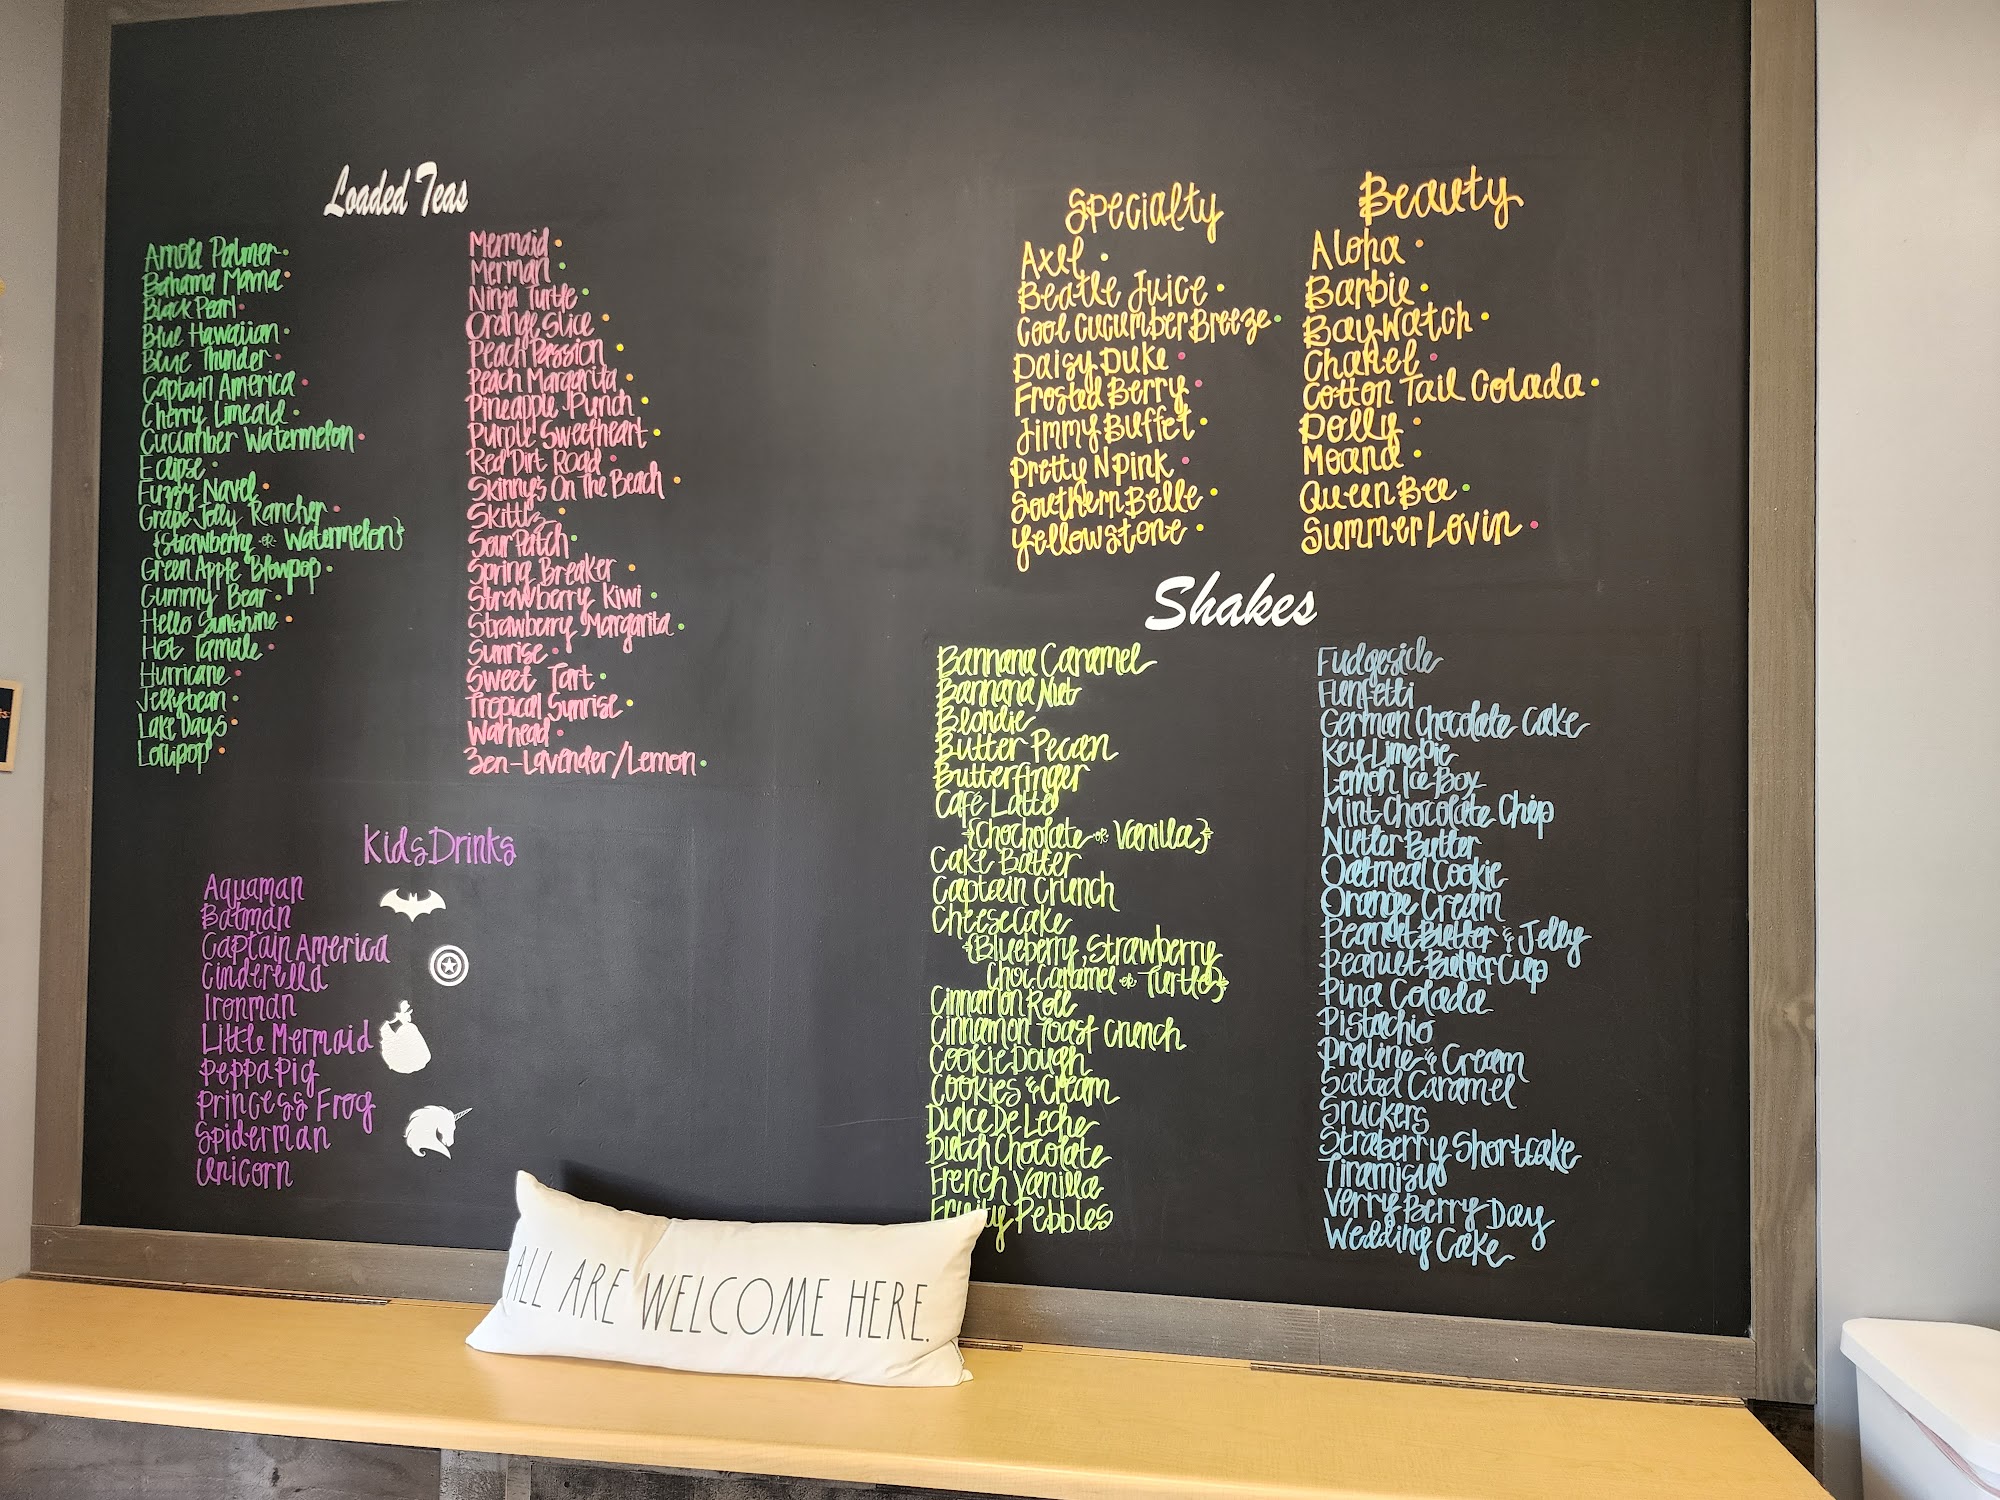 Loaded Teas
Arnold Palmer
Bahama Mama
Black Pearl
Blue Hawaiian
Blue Thunder
Captain America
Cherry Limeaid
Cucumber Watermelon
Eclipse
Fuzzy Navel
Grape Jolly Rancher
{Strawberry or Watermelon}
Green Apple Blowpop
Gummy Bear
Hello Sunshine
Hot Tamale
Hurricane
Jellybean
Lake Days
Lollipop
Mermaid
Merman
Ninja Turtle
Orange Slice
Peach Passion
Peach Margarita
Pineapple Punch
Purple Sweetheart
Red Dirt Road
Skinny's On The Beach
Skittlz
Sour Patch
Spring Breaker
Strawberry Kiwi
Strawberry Margarita
Sunrise
Sweet Tart
Tropical Sunrise
Warhead
Zen-Lavender/Lemon
Kids Drinks
Aquaman
Batman
Captain America
Cinderella
Ironman
Little Mermaid
Peppa Pig
Princess Frog
Spiderman
Unicorn
Specialty
Axel
Beatle Juice
Cool Cucumber Breeze
Daisy Duke
Frosted Berry
Jimmy Buffet
Pretty N Pink
Southern Belle
Yellowstone
Beauty
Aloha
Barbie
Baywatch
Chanel
Cotton Tail Colada
Dolly
Moana
Queen Bee
Summer Lovin
Shakes
Bannana Caramel
Bannana Nut
Blondie
Butter Pecan
Butterfinger
Café Latte
{Chocholate or Vanilla}
Cake Batter
Captain Crunch
Cheesecake
{Blueberry, Strawberry
Choc. Caramel or Turtle}
Cinnamon Roll
Cinnamon Toast Crunch
Cookie Dough
Cookies & Cream
Dulce De Leche
Dutch Chocolate
French Vanilla
Fruity Pebbles
Fudgesicle
Funfetti
German Chocolate Cake
Key Lime Pie
Lemon Ice Box
Mint Chocolate Chip
Nutter Butter
Oatmeal Cookie
Orange Cream
Peanut Butter & Jelly
Peanut Butter Cup
Pina Colada
Pistachio
Praline & Cream
Salted Caramel
Snickers
Straberry Shortcake
Tiramisu
Verry Berry Day
Wedding Cake
ALL ARE WELCOME HERE.